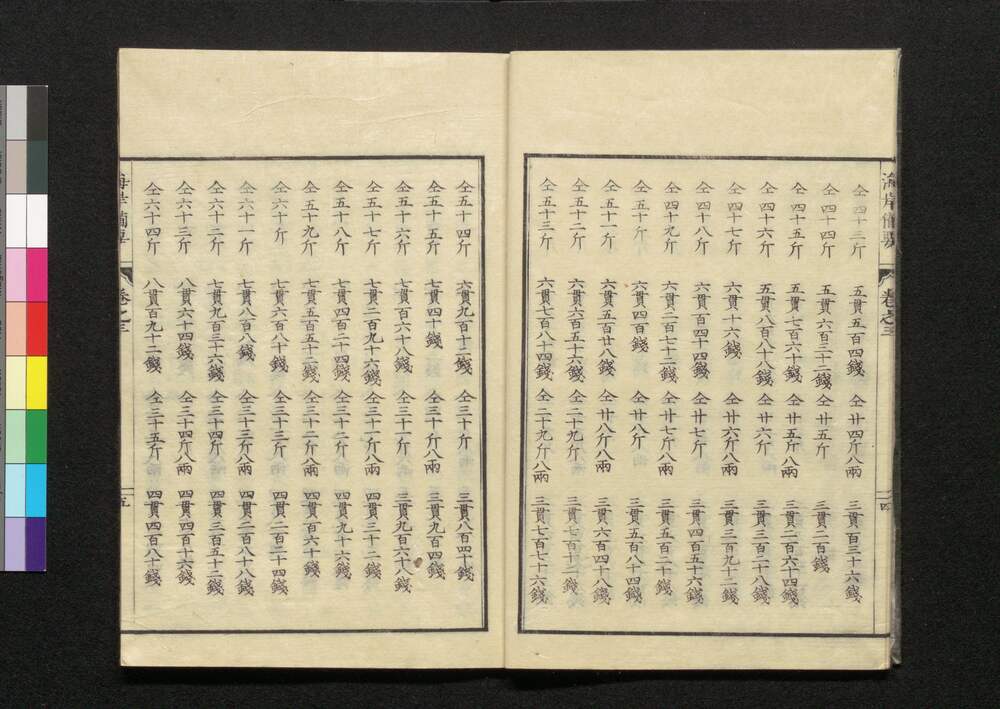 海岸備要 巻之三 四
仝四十三斤 五貫五百四錢 仝廿四斤八兩 三貫百三十六錢
仝四十四斤 五貫六百三十二錢 仝廿五斤 三貫二百錢
仝四十五斤 五貫七百六十錢 仝廿五斤八兩 三貫二百六十四錢
仝四十六斤 五貫八百八十八錢 仝廿六斤 三貫三百二十八錢
仝四十七斤 六貫十六錢 仝廿六斤八兩 三貫三百九十二錢
仝四十八斤 六貫百四十四錢 仝廿七斤 三貫四百五十六錢
仝四十九斤 六貫二百七十二錢 仝廿七斤八兩 三貫五百二十錢
仝五十斤 六貫四百錢 仝廿八斤 三貫五百八十四錢
仝五十一斤 六貫五百廿八錢 仝廿八斤八兩 三貫六百四十八錢
仝五十二斤 六貫六百五十六錢 仝二十九斤 三貫七百十二錢
仝五十三斤 六貫七百八十四錢 仝二十九斤八兩 三貫七百七十六錢
仝五十四斤 六貫九百十二錢 仝三十斤 三貫八百四十錢
仝五十五斤 七貫四十錢 仝三十斤八兩 三貫九百四錢
仝五十六斤 七貫百六十八錢 仝三十一斤 三貫九百六十八錢
仝五十七斤 七貫二百九十六錢 仝三十一斤八兩 四貫三十二錢
仝五十八斤 七貫四百二十四錢 仝三十二斤 四貫九十六錢
仝五十九斤 七貫五百五十二錢 仝三十二斤八兩 四貫百六十錢
仝六十斤 七貫六百八十錢 仝三十三斤 四貫二百二十四錢
仝六十一斤 七貫八百八錢 仝三十三斤八兩 四貫二百八十八錢
仝六十二斤 七貫九百三十六錢 仝三十四斤 四貫三百五十二錢
仝六十三斤 八貫六十四錢 仝三十四斤八兩 四貫四百十六錢
仝六十四斤 八貫百九十二錢 仝三十五斤 四貫四百八十錢
海岸備要 巻之三 五